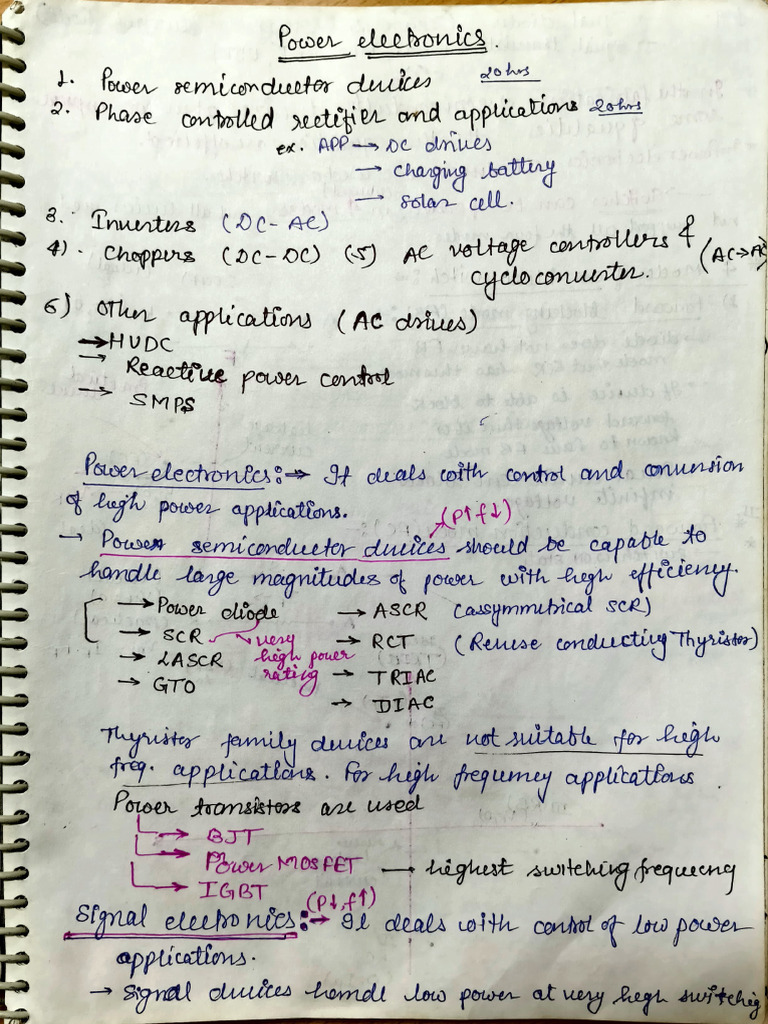 Power electronics.
1. Power semiconductor devices 20 hrs
2. Phase controlled rectifier and applications 20 hrs
ex. APP → DC drives
→ charging battery
→ solar cell.
3. Inverters (DC-AC)
4). Choppers (DC-DC) (5) AC voltage controllers & (AC→AC)
cycloconverter.
6) Other applications (AC drives)
→ HVDC
→ Reactive power control
→ SMPS
Power electronics:→ It deals with control and conversion
of high power applications.
(P↑ f↓)
→ Power semiconductor devices should be capable to
handle large magnitudes of power with high efficiency.
→ Power diode → ASCR (assymmetrical SCR)
→ SCR → very high power rating → RCT (Reverse conducting Thyristor)
→ LASCR → TRIAC
→ GTO → DIAC
Thyristor family devices are not suitable for high
freq. applications. For high frequency applications
Power transistors are used
→ BJT
→ Power MOSFET → highest switching frequency
→ IGBT
(P↓, f↑)
Signal electronics:→ It deals with control of low power
applications.
→ Signal devices handle low power at very high switching